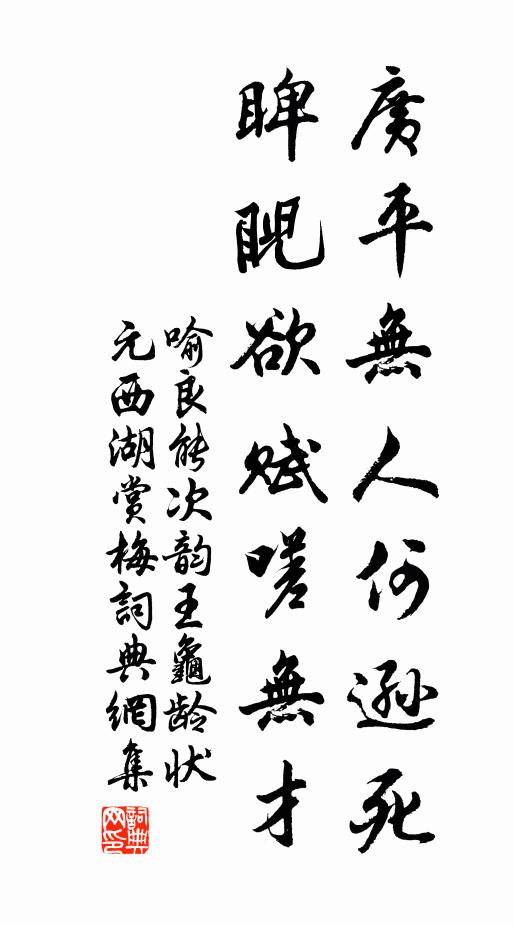 廣平無人何遜死
睥睨欲賦嗟無才
喻良能次韵王龜龄状
元西湖賞梅詞典網集
詞典
网印